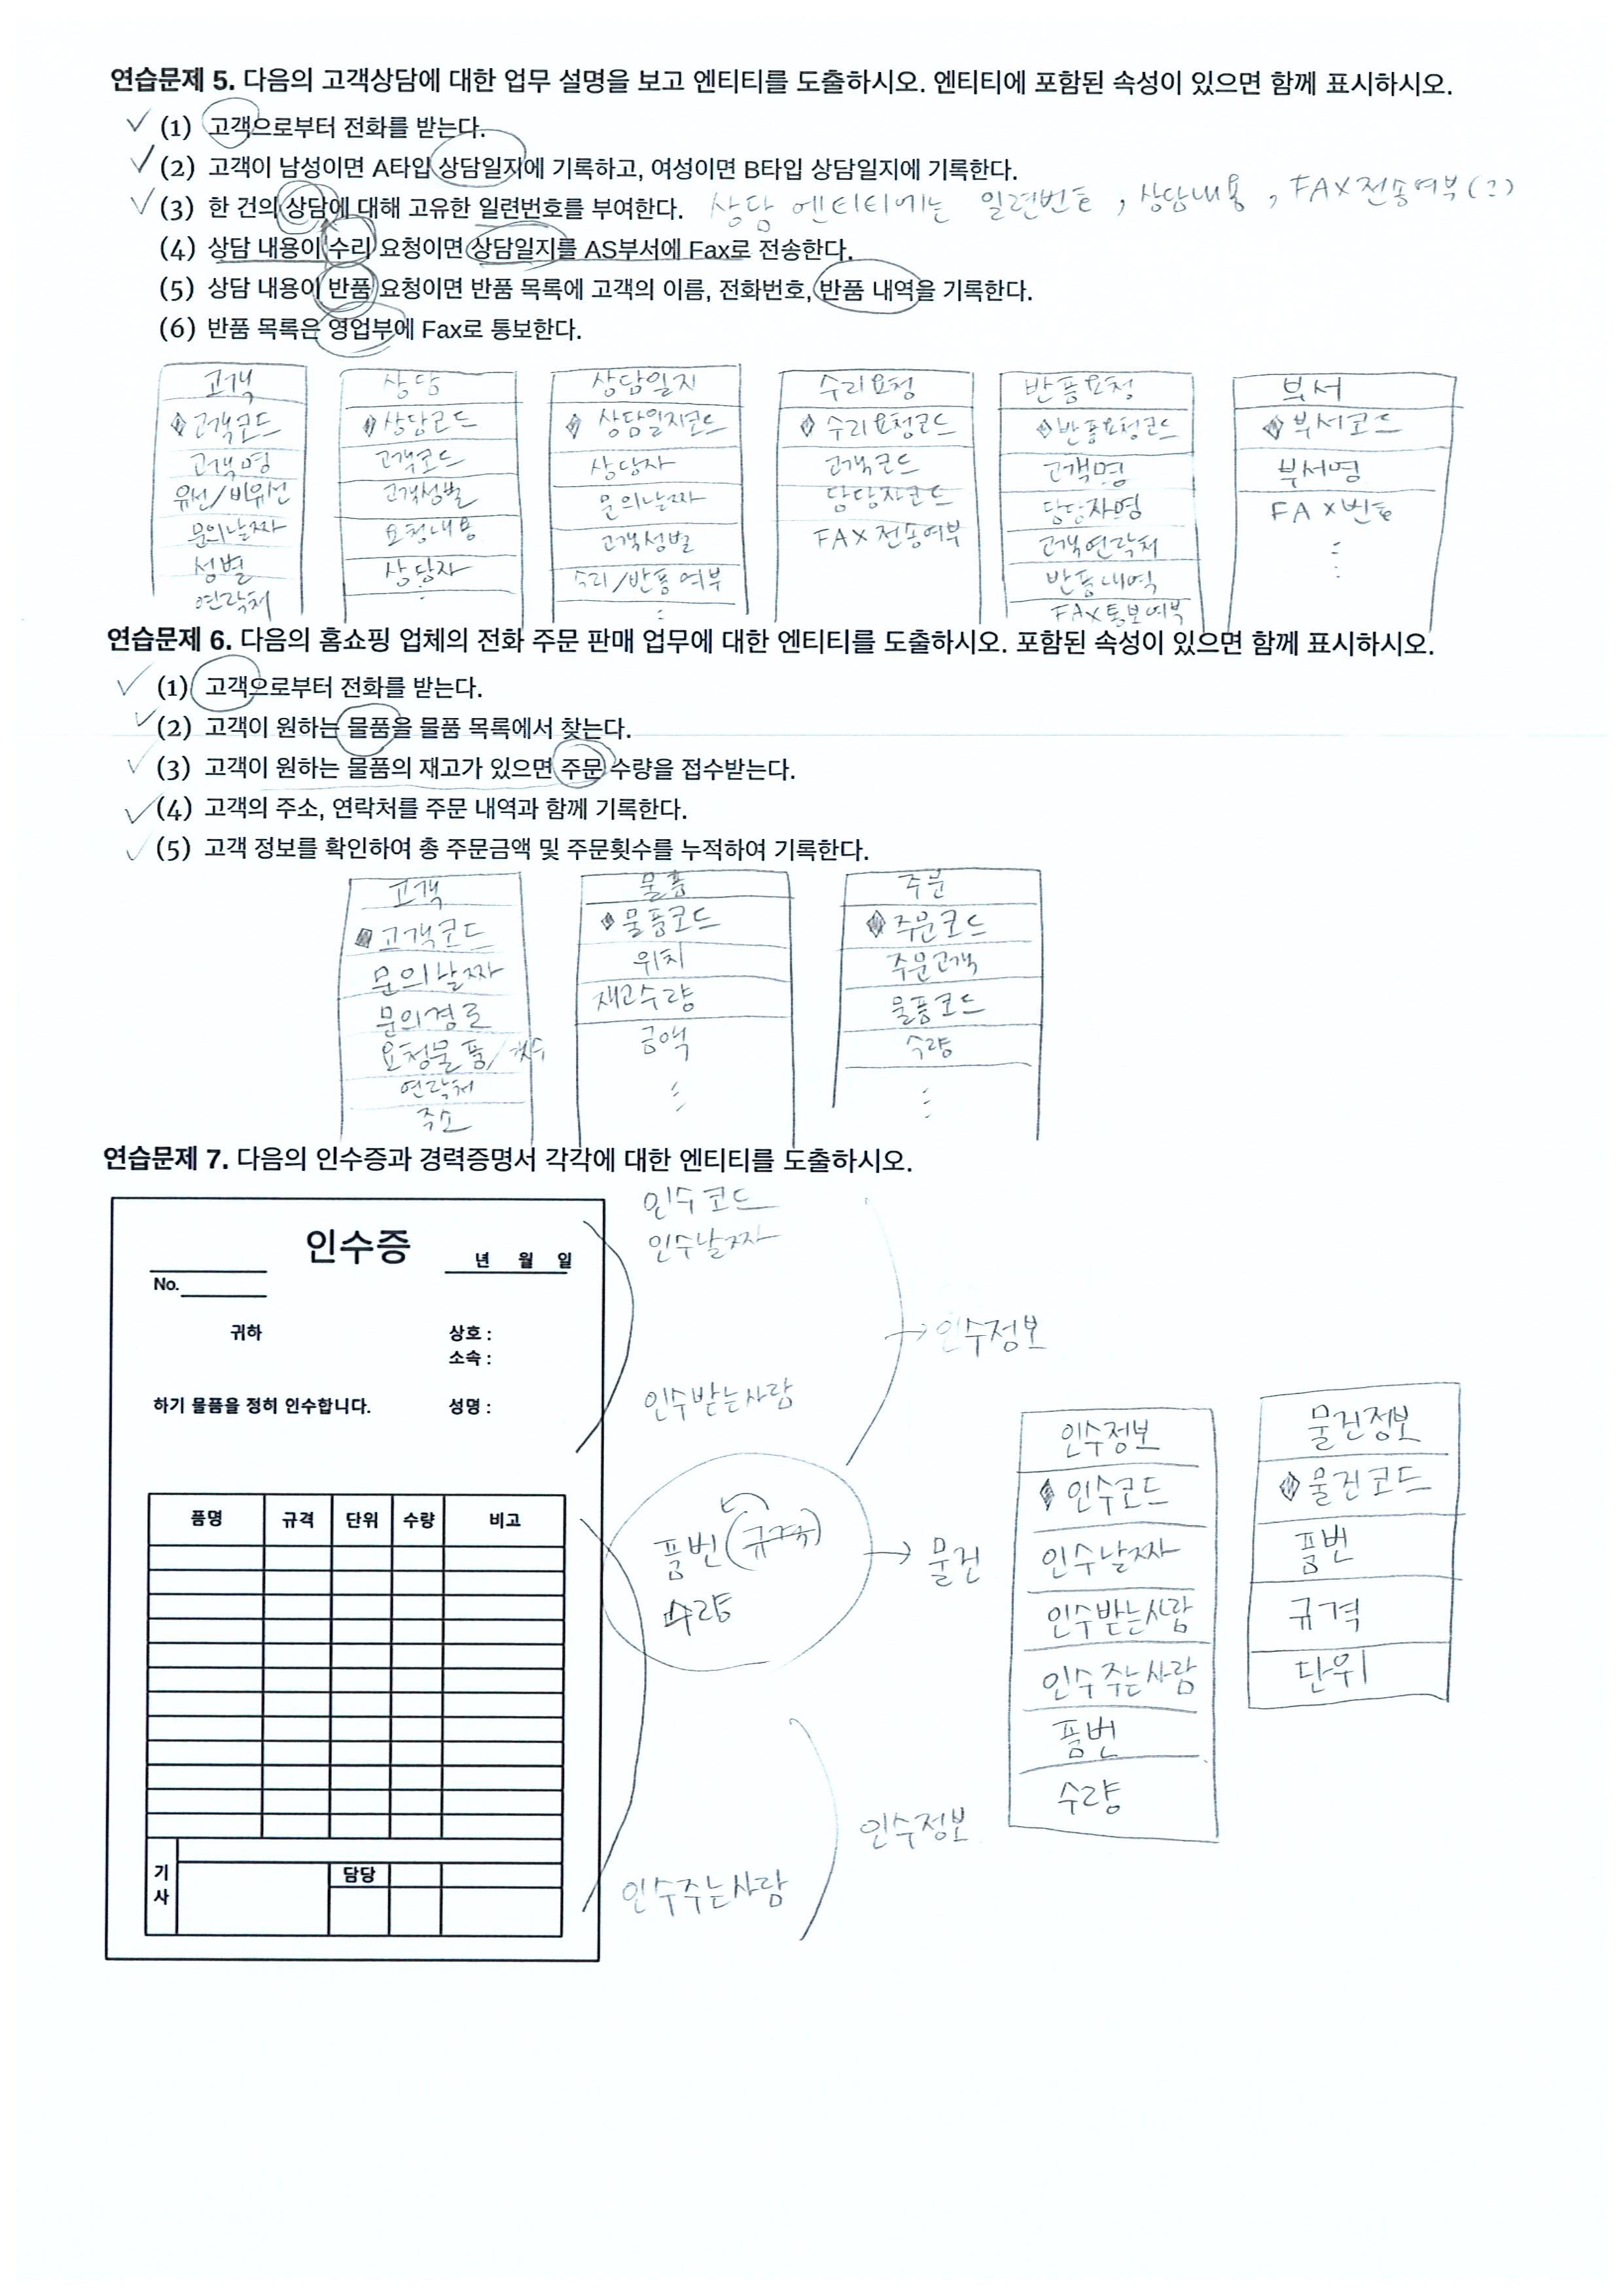 연습문제 5. 다음의 고객상담에 대한 업무 설명을 보고 엔티티를 도출하시오. 엔티티에 포함된 속성이 있으면 함께 표시하시오.
(1) 고객으로부터 전화를 받는다.
(2) 고객이 남성이면 A타입 상담일지에 기록하고, 여성이면 B타입 상담일지에 기록한다.
(3) 한 건의 상담에 대해 고유한 일련번호를 부여한다. 상담 엔티티에는 일련번호, 상담내용, FAX전송여부(?)
(4) 상담 내용이 수리 요청이면 상담일지를 AS부서에 Fax로 전송한다.
(5) 상담 내용이 반품 요청이면 반품 목록에 고객의 이름, 전화번호, 반품 내역을 기록한다.
(6) 반품 목록은 영업부에 Fax로 통보한다.
고객
고객코드
고객명
유선/비유선
문의날짜
성별
연락처
상담
상담코드
고객코드
고객성별
요청내용
상담자
상담일지
상담일지코드
상담자
문의날짜
고객성별
수리/반품 여부
수리요청
수리요청코드
고객코드
담당자코드
FAX 전송여부
반품요청
반품요청코드
고객명
담당자명
고객연락처
반품내역
FAX통보여부
부서
부서코드
부서명
FAX번호
연습문제 6. 다음의 홈쇼핑 업체의 전화 주문 판매 업무에 대한 엔티티를 도출하시오. 포함된 속성이 있으면 함께 표시하시오.
(1) 고객으로부터 전화를 받는다.
(2) 고객이 원하는 물품을 물품 목록에서 찾는다.
(3) 고객이 원하는 물품의 재고가 있으면 주문 수량을 접수받는다.
(4) 고객의 주소, 연락처를 주문 내역과 함께 기록한다.
(5) 고객 정보를 확인하여 총 주문금액 및 주문횟수를 누적하여 기록한다.
고객
고객코드
문의날짜
문의경로
요청물품/갯수
연락처
주소
물품
물품코드
위치
재고수량
금액
주문
주문코드
주문고객
물품코드
수량
연습문제 7. 다음의 인수증과 경력증명서 각각에 대한 엔티티를 도출하시오.
인수증
년 월 일
No.
귀하
상호 :
소속 :
하기 물품을 정히 인수합니다. 성명 :
품명 규격 단위 수량 비고
기사
담당
인수코드
인수날짜
인수받는사람
→인수정보
품번(규격)
수량
→ 물건
인수주는사람
인수정보
인수정보
인수코드
인수날짜
인수받는사람
인수주는사람
품번
수량
물건정보
물건코드
품번
규격
단위